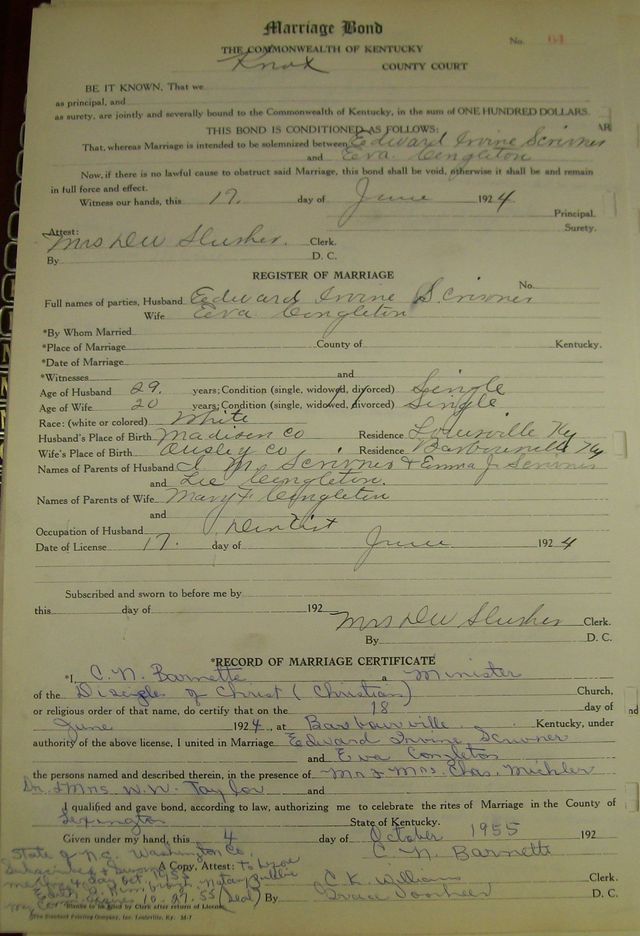 Marriage Bond
No. 64
THE COMMONWEALTH OF KENTUCKY
Knox COUNTY COURT
BE IT KNOWN, That we
as principal, and
as surety, are jointly and severally bound to the Commonwealth of Kentucky, in the sum of ONE HUNDRED DOLLARS.
THIS BOND IS CONDITIONED AS FOLLOWS:
AR
That, whereas Marriage is intended to be solemnized between Edward Irvine Scrivner
and Eva Congleton
Now, if there is no lawful cause to obstruct said Marriage, this bond shall be void, otherwise it shall be and remain
in full force and effect.
Witness our hands, this 17. day of June 1924
Principal.
Attest: Surety.
Mrs DW Slusher. Clerk.
By D. C.
REGISTER OF MARRIAGE
No.
Full names of parties, Husband Edward Irvine Scrivner
Wife Eva Congleton
*By Whom Married
*Place of Marriage County of Kentucky.
*Date of Marriage
*Witnesses and
Age of Husband 29. years; Condition (single, widowed, divorced) Single
Age of Wife 20 years; Condition (single, widowed, divorced) Single
Race: (white or colored) White
Husband's Place of Birth Madison Co Residence Louisville Ky
Wife's Place of Birth Owsley Co. Residence Barbourville Ky
Names of Parents of Husband M. Scrivner & Emma J. Scrivner
and Lee Congleton.
Names of Parents of Wife Mary F Congleton
and
Occupation of Husband Dentist
Date of License 17. day of June 1924
Subscribed and sworn to before me by
this day of 192
Mrs DW Slusher Clerk.
By D. C.
*RECORD OF MARRIAGE CERTIFICATE
*I, C. N. Barnette a Minister
of the Disciples of Christ (Christian) Church,
or religious order of that name, do certify that on the 18 day of
nd
June 1924, at Barbourville Kentucky, under
authority of the above license, I united in Marriage Edward Irvine Scrivner
and Eva Congleton
the persons named and described therein, in the presence of Mr & Mrs. Chas. Michler
Dr. & Mrs. W. W. Taylor and
I qualified and gave bond, according to law, authorizing me to celebrate the rites of Marriage in the County of
Lexington State of Kentucky.
Given under my hand, this 4 day of October 1955 192
State of N.C. Washington Co. C. N. Barnette
Subscribed & sworn A Copy, Attest: to before
me this 4 day Oct 1955 C. K. Williams Clerk.
Notary Public
My Com. Expires 10-27-55 (Seal) By Grace Voorhees D. C.
*Blanks to be filled by Clerk after return of License
The Standard Printing Company, Inc. Louisville, Ky. M-7